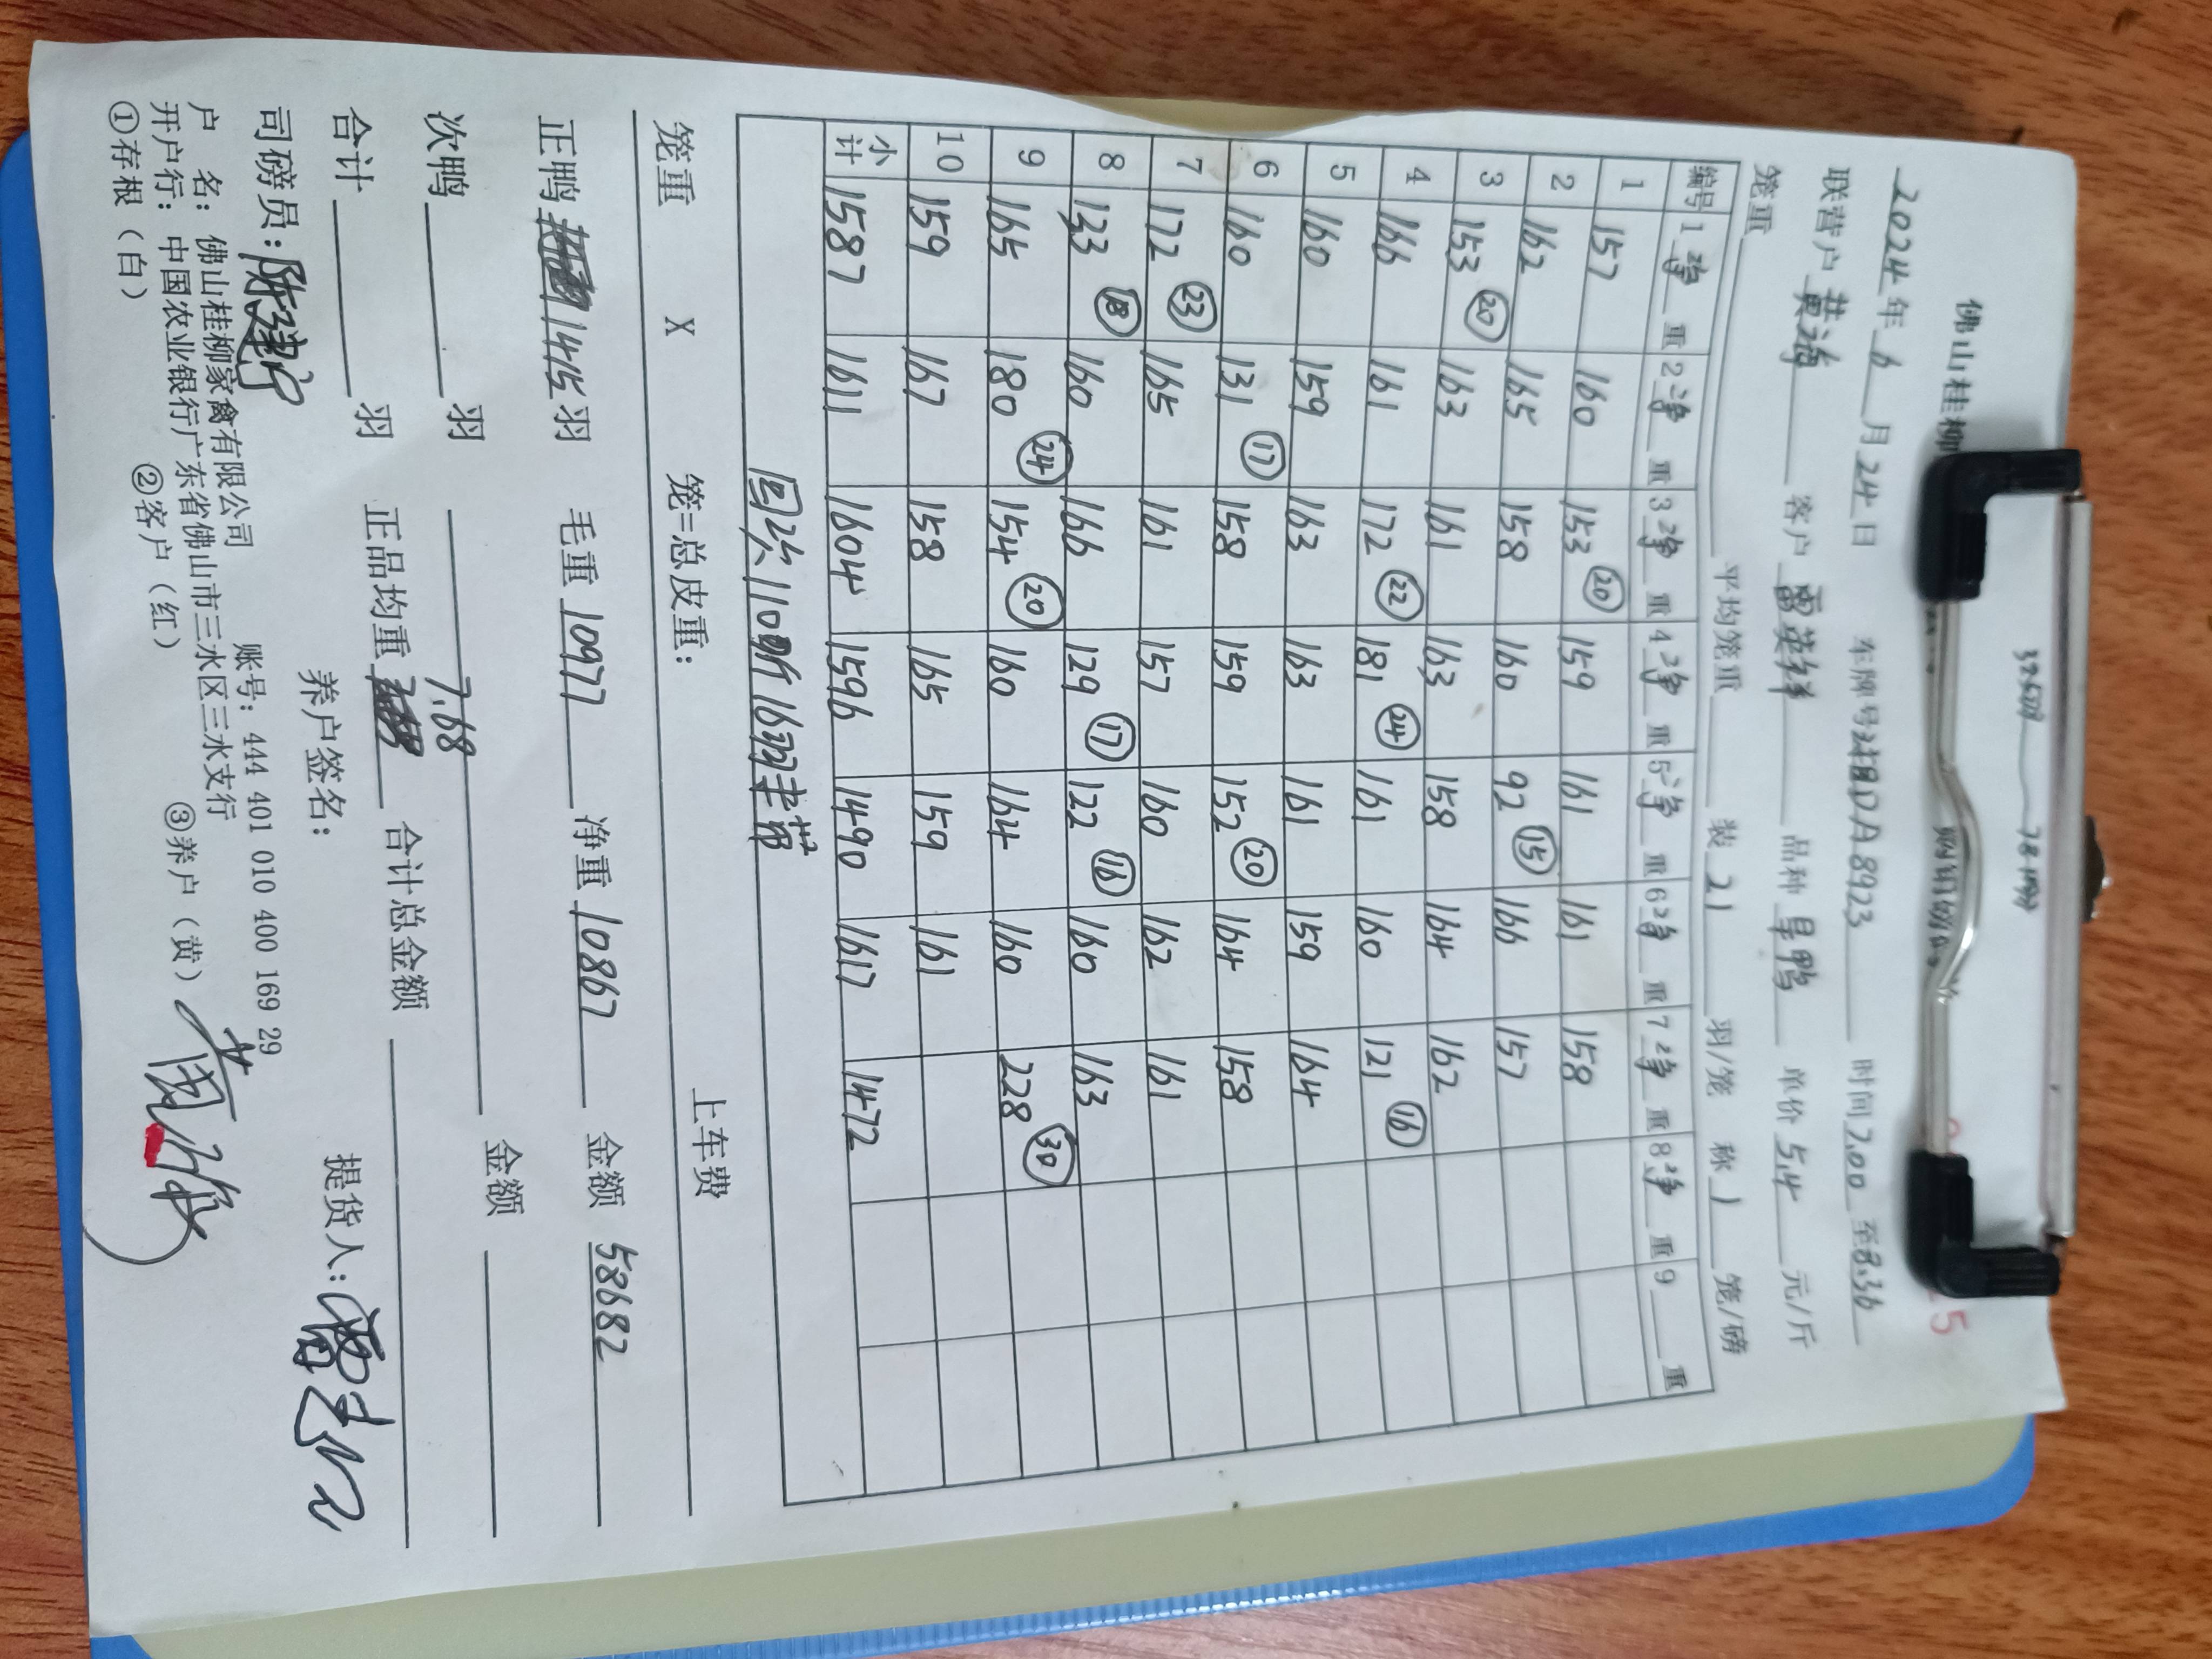 佛山桂柳
2024年6月24日 车牌号 DA8923 时间7.00至8.36
联营户 黄海 客户 雷英祥 品种 旱鸭 单价5.4元/斤
笼重 平均笼重 装21羽/笼 称1笼/磅
编号 1净重 2净重 3净重 4净重 5净重 6净重 7净重 8净重 9 重
1 157 160 153⑳ 159 161 161 158
2 162 165 158 160 92⑮ 166 157
3 153⑳ 163 161 163 158 164 162
4 166 161 172㉒ 181㉔ 161 160 121⑯
5 160 159 163 163 161 159 164
6 160 131⑰ 158 159 152⑳ 164 158
7 172㉓ 165 161 157 160 162 161
8 133⑱ 160 166 129⑰ 122⑯ 160 163
9 165 180㉔ 154⑳ 160 164 160 228㉚
10 159 167 158 165 159 161
小计 1587 1611 1604 1596 1490 1617 1472
110斤16羽
笼重 X 笼=总皮重: 上车费
正鸭 1415羽 毛重 10977 净重 10867 金额 58682
次鸭 羽 7.68 金额
合计 羽 正品均重 合计总金额
司磅员: 养户签名: 提货人:
户 名: 佛山桂柳家禽有限公司 账号: 444 401 010 400 169 29
开户行: 中国农业银行广东省佛山市三水区三水支行
①存根（白） ②客户（红） ③养户（黄）